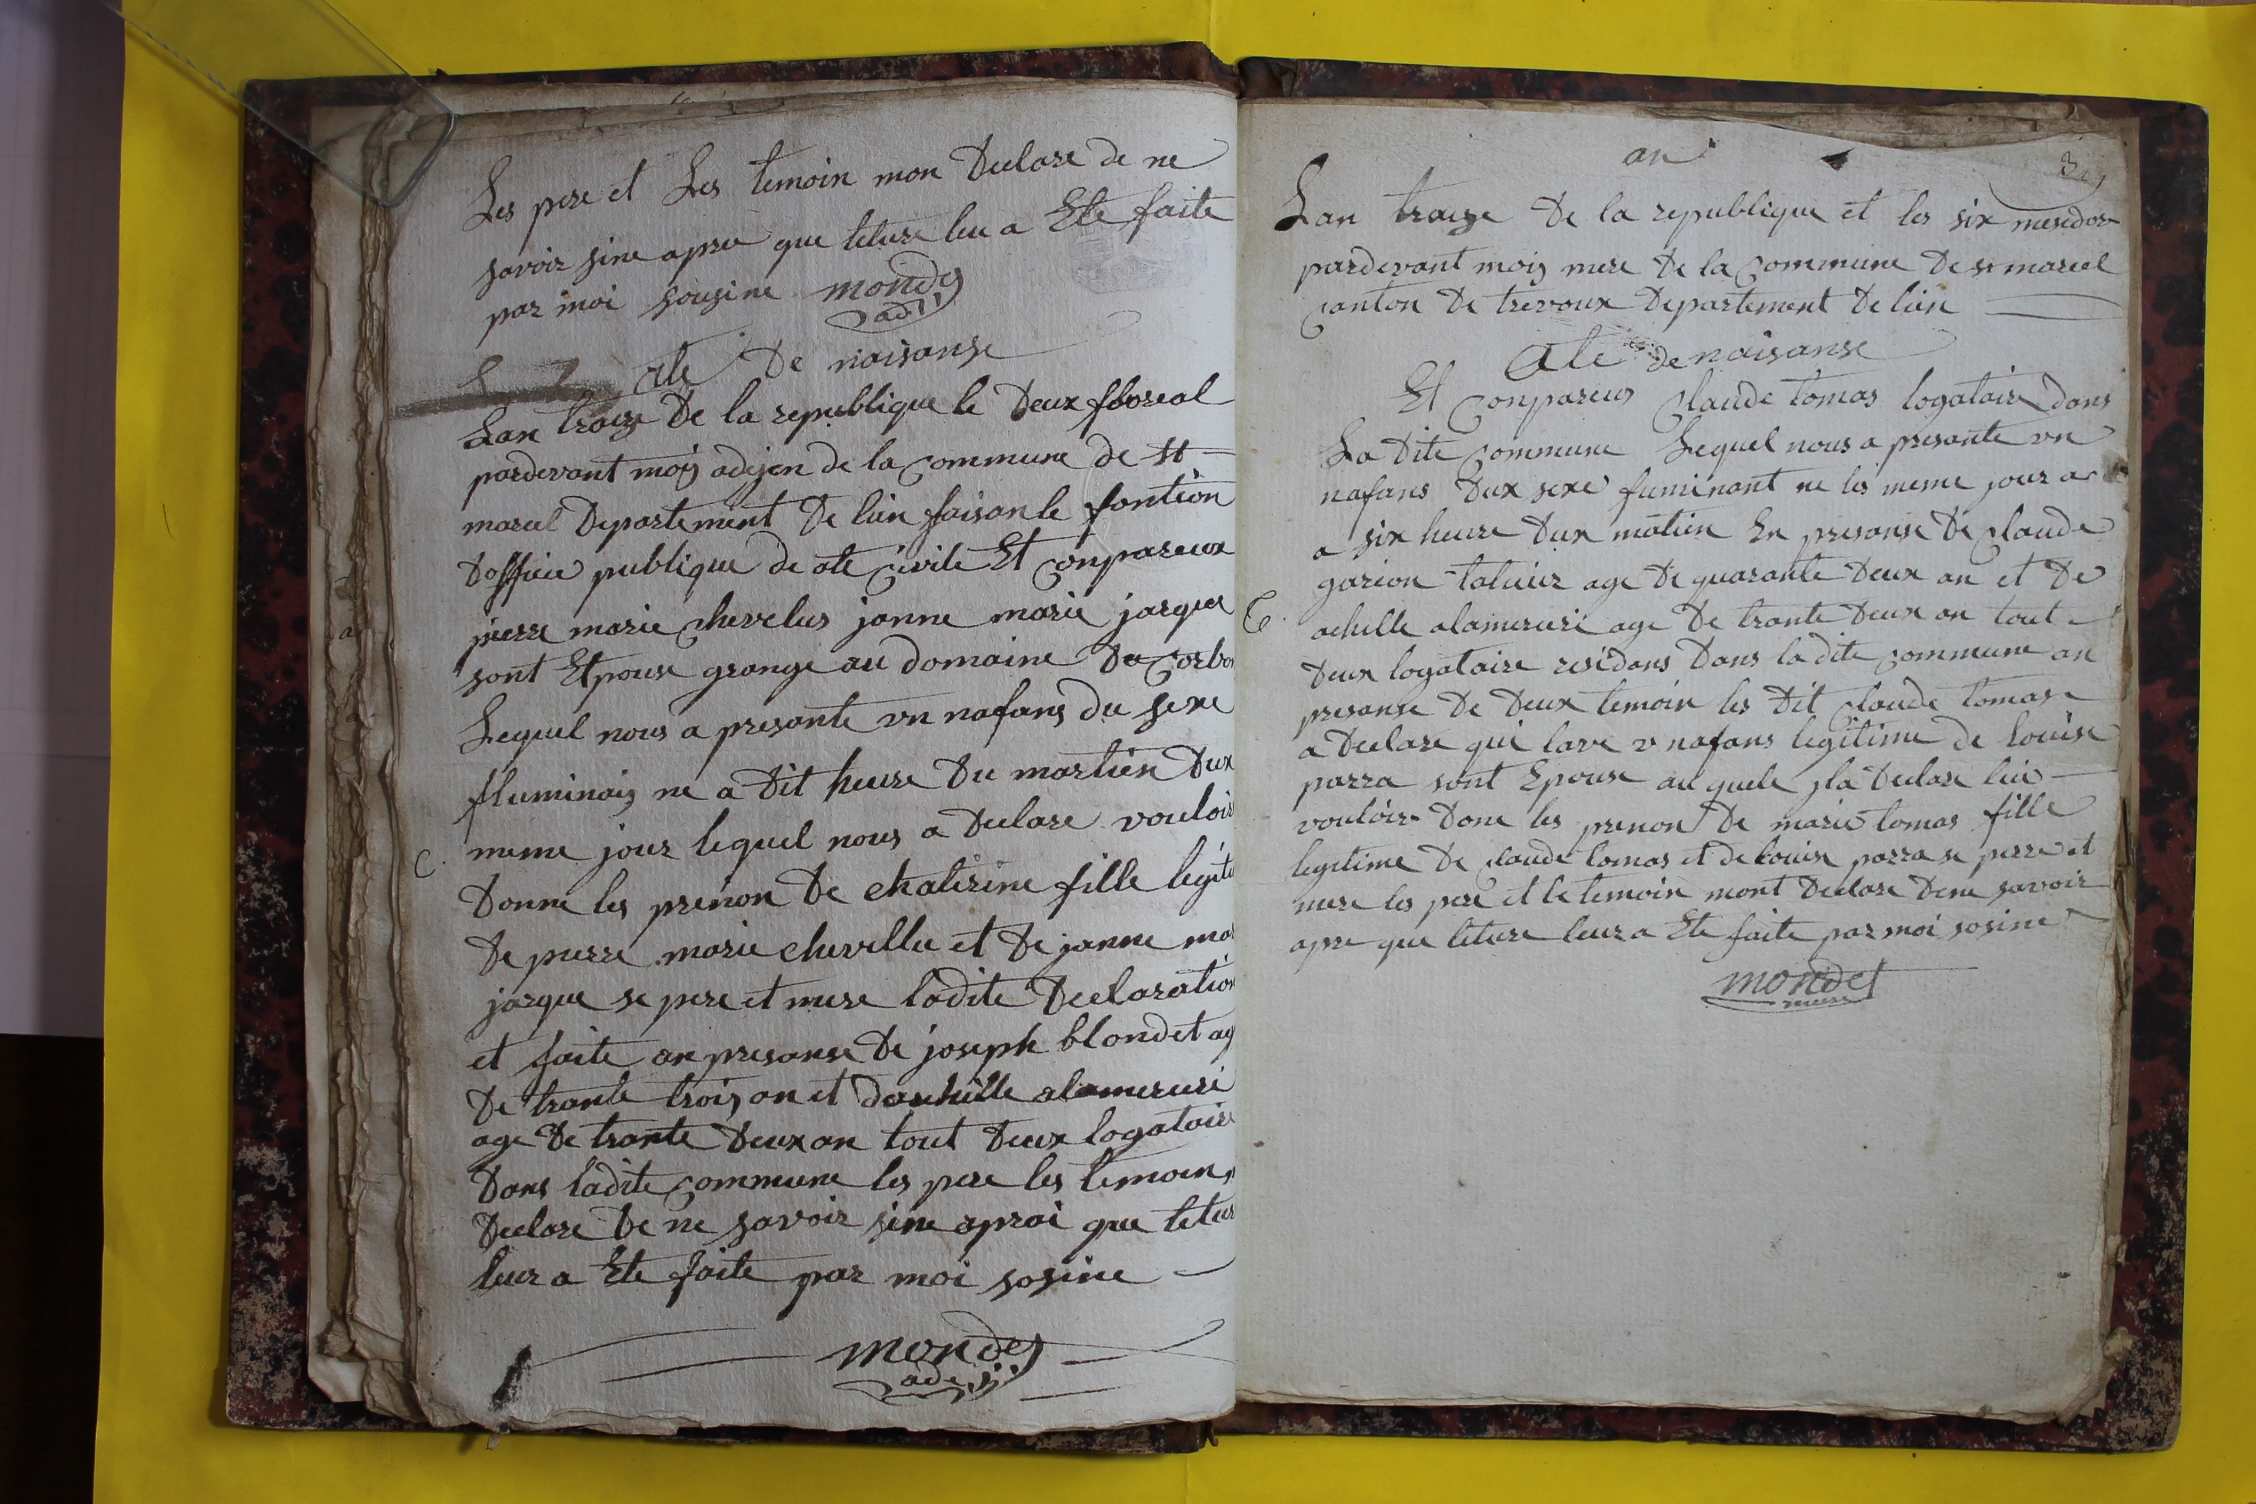 Les pere et Les temoin mon Declare de ne
savoir sine apre que leture leu a Ete faite
par moi sousine mondes
adj
ate De naisanse
Lan traize De la republique le Deux floreal
pardevant moij adijen de la commune de st
marcel Departement De lain faisan le fontion
Doffice publique de ate civile Et conpareux
pierre marie chevelus janne marie jarque
sont Etpouse grange au domaine Du Corbo
Lequel nous a presante un nafans du sexe
fluminais ne a Dit heure Du martien Dux
meme jour lequel nous a Declare vouloir
Donne les prenon De chaterine fille legit
De pierre marie chevellu et De janne mar
jarque se pere et mere ladite Declaration
et faite an presanse De joseph blondet ag
De trante trois an et dachille alamercuri
age De trante Deux an tout Deux logataire
Dans ladite commune les pere les temoin
Declare De ne savoir sine aprai que letur
leur a Ete faite par moi sosine
mondes
adej
an
Lan traize De la republique et les six mesidor
pardevant mois mere De la commune De st marcel
canton De trevoux Departement De lain
Ate de naisanse
Et conpareus Claude tomas logataire dans
La Dite commune Lequel nous a presante un
nafans Dux sexe fuminant ne les meme jour a
a six heure Dux matien En presanse De Claude
garion age De quarante Deux an et De
achille alamercuri age De trante Deux an tout
Deux logataire residans Dans la dite commune an
presanse De Deux temoin les Dit Claude tomas
a Declare qui lave u nafans legitime de louise
parra sont Epouse au quele jla Declare lui
vouloir Done les prenon De marie tomas fille
legitime De Claude tomas et de louise parra se perre et
mere les pere et le temoin mont Declare Dene savoir
apre que leture leur a Ete faite par moi sosine
mondes
mere